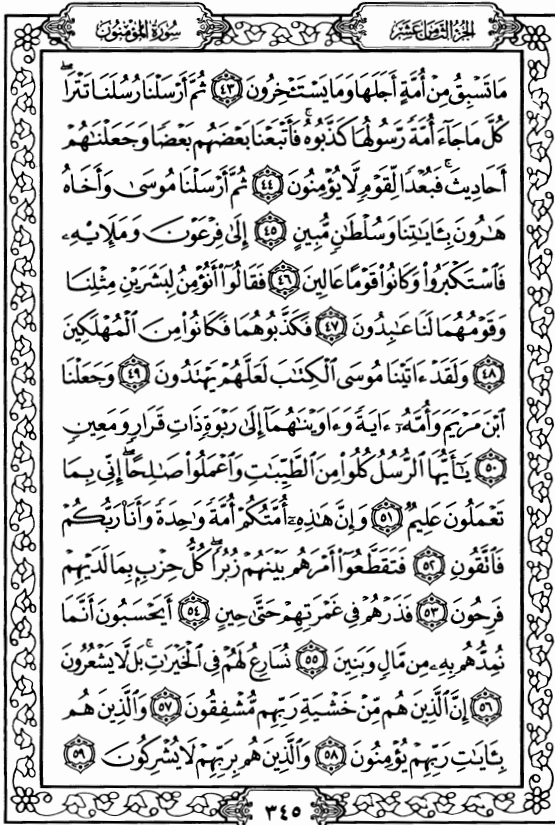 سُورَةُ المُؤْمِنُونَ
الجُزءُ الثَّامِنَ عَشَرَ
مَا تَسْبِقُ مِنْ أُمَّةٍ أَجَلَهَا وَمَا يَسْتَـْٔخِرُونَ ٤٣ ثُمَّ أَرْسَلْنَا رُسُلَنَا تَتْرَاۖ
كُلَّ مَا جَآءَ أُمَّةً رَّسُولُهَا كَذَّبُوهُۚ فَأَتْبَعْنَا بَعْضَهُم بَعْضًا وَجَعَلْنَٰهُمْ
أَحَادِيثَۚ فَبُعْدًا لِّقَوْمٍ لَّا يُؤْمِنُونَ ٤٤ ثُمَّ أَرْسَلْنَا مُوسَىٰ وَأَخَاهُ
هَٰرُونَ بِـَٔايَٰتِنَا وَسُلْطَٰنٍ مُّبِينٍ ٤٥ إِلَىٰ فِرْعَوْنَ وَمَلَإِي۟هِۦ
فَٱسْتَكْبَرُوا۟ وَكَانُوا۟ قَوْمًا عَالِينَ ٤٦ فَقَالُوٓا۟ أَنُؤْمِنُ لِبَشَرَيْنِ مِثْلِنَا
وَقَوْمُهُمَا لَنَا عَٰبِدُونَ ٤٧ فَكَذَّبُوهُمَا فَكَانُوا۟ مِنَ ٱلْمُهْلَكِينَ
٤٨ وَلَقَدْ ءَاتَيْنَا مُوسَى ٱلْكِتَٰبَ لَعَلَّهُمْ يَهْتَدُونَ ٤٩ وَجَعَلْنَا
ٱبْنَ مَرْيَمَ وَأُمَّهُۥٓ ءَايَةً وَءَاوَيْنَٰهُمَآ إِلَىٰ رَبْوَةٍ ذَاتِ قَرَارٍ وَمَعِينٍ
٥٠ يَٰٓأَيُّهَا ٱلرُّسُلُ كُلُوا۟ مِنَ ٱلطَّيِّبَٰتِ وَٱعْمَلُوا۟ صَٰلِحًاۖ إِنِّى بِمَا
تَعْمَلُونَ عَلِيمٌ ٥١ وَإِنَّ هَٰذِهِۦٓ أُمَّتُكُمْ أُمَّةً وَٰحِدَةً وَأَنَا۠ رَبُّكُمْ
فَٱتَّقُونِ ٥٢ فَتَقَطَّعُوٓا۟ أَمْرَهُم بَيْنَهُمْ زُبُرًاۖ كُلُّ حِزْبٍۭ بِمَا لَدَيْهِمْ
فَرِحُونَ ٥٣ فَذَرْهُمْ فِى غَمْرَتِهِمْ حَتَّىٰ حِينٍ ٥٤ أَيَحْسَبُونَ أَنَّمَا
نُمِدُّهُم بِهِۦ مِن مَّالٍ وَبَنِينَ ٥٥ نُسَارِعُ لَهُمْ فِى ٱلْخَيْرَٰتِۚ بَل لَّا يَشْعُرُونَ
٥٦ إِنَّ ٱلَّذِينَ هُم مِّنْ خَشْيَةِ رَبِّهِم مُّشْفِقُونَ ٥٧ وَٱلَّذِينَ هُم
بِـَٔايَٰتِ رَبِّهِمْ يُؤْمِنُونَ ٥٨ وَٱلَّذِينَ هُم بِرَبِّهِمْ لَا يُشْرِكُونَ ٥٩
٣٤٥